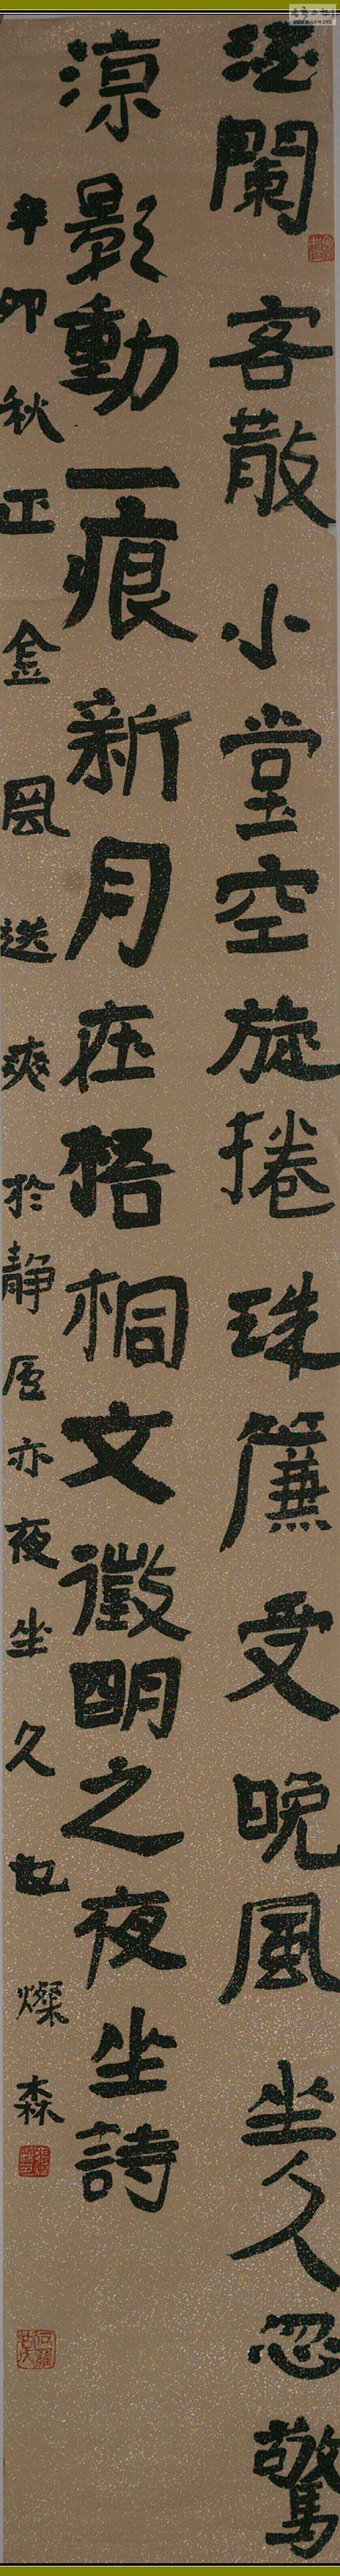 酒闌客散小堂空旋捲珠簾受晚風坐久忽驚
涼影動一痕新月在梧桐文徵明之夜坐詩
辛卯秋正金風送爽於靜廬亦夜坐久也燦森